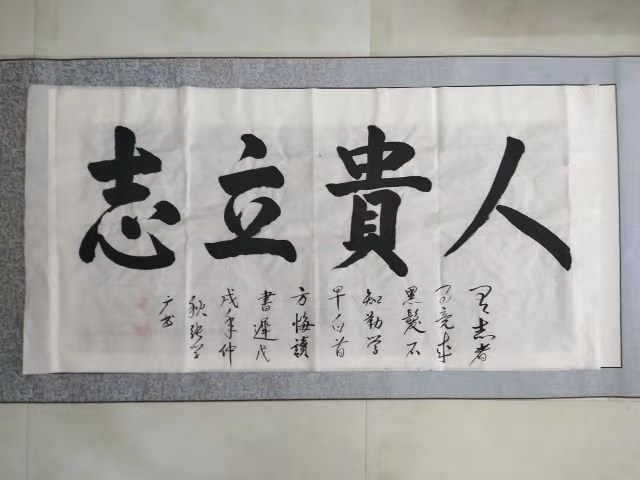 人貴立志
有志者
事竟成
黑髮不
知勤學
早白首
方悔讀
書遲戊
戌年仲
秋張學
广书